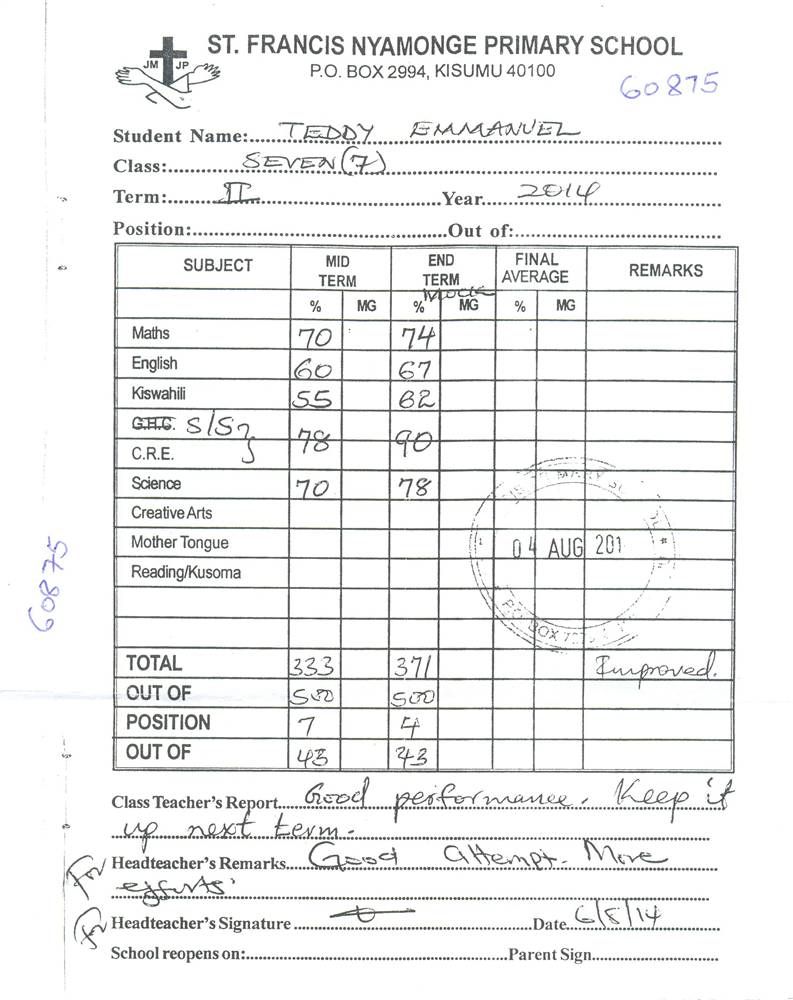 JM JP
ST. FRANCIS NYAMONGE PRIMARY SCHOOL
P.O. BOX 2994, KISUMU 40100
60875
Student Name: TEDDY EMMANUEL
Class: SEVEN (7)
Term: II Year 2014
Position: Out of:
SUBJECT MID TERM END TERM FINAL AVERAGE REMARKS
Mock
% MG % MG % MG
Maths 70 74
English 60 67
Kiswahili 55 62
G.H.C. S/S
C.R.E. 78 90
Science 70 78
Creative Arts
Mother Tongue
Reading/Kusoma
04 AUG 201
P.O. BOX
60875
TOTAL 333 371 Improved.
OUT OF 500 500
POSITION 7 4
OUT OF 43 43
Class Teacher's Report Good performance. Keep it
up next term.
For Headteacher's Remarks Good Attempt. More
efforts
For Headteacher's Signature Date 6/8/14
School reopens on: Parent Sign